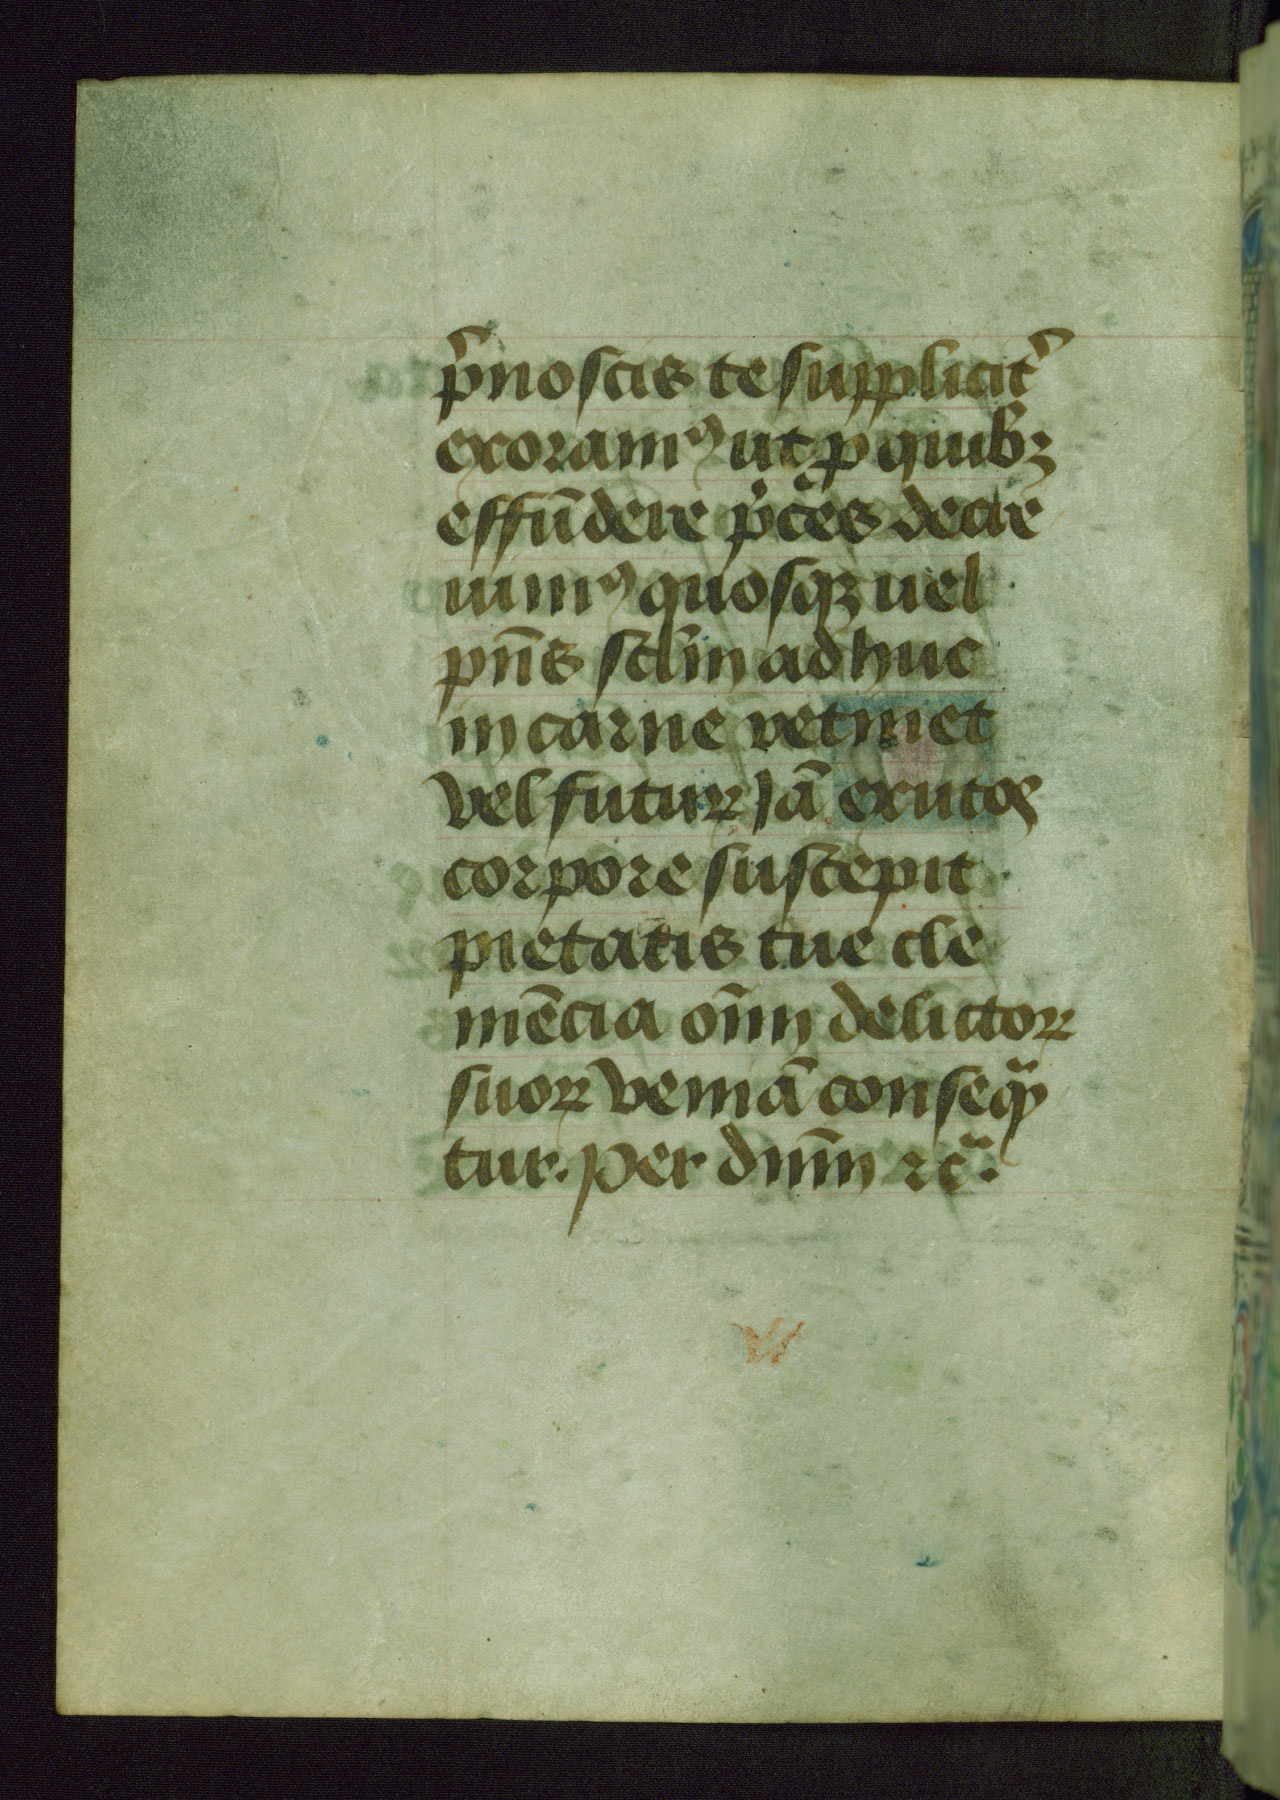 p̄noscis te supplicit᷒
exoramꝰ ut ꝓ quibꝫ
effūdere p̄ces decre
uimꝰ quosqꝫ uel
pn̄s scl̄m adhuc
in carne retinet
vel futuꝝ iā exutos
corpore suscepit
pietatis tue cle
mēcia oīm delictoꝝ
suoꝝ veniā conseqͣ̄
tur. per dn̄m ⁊c̄.